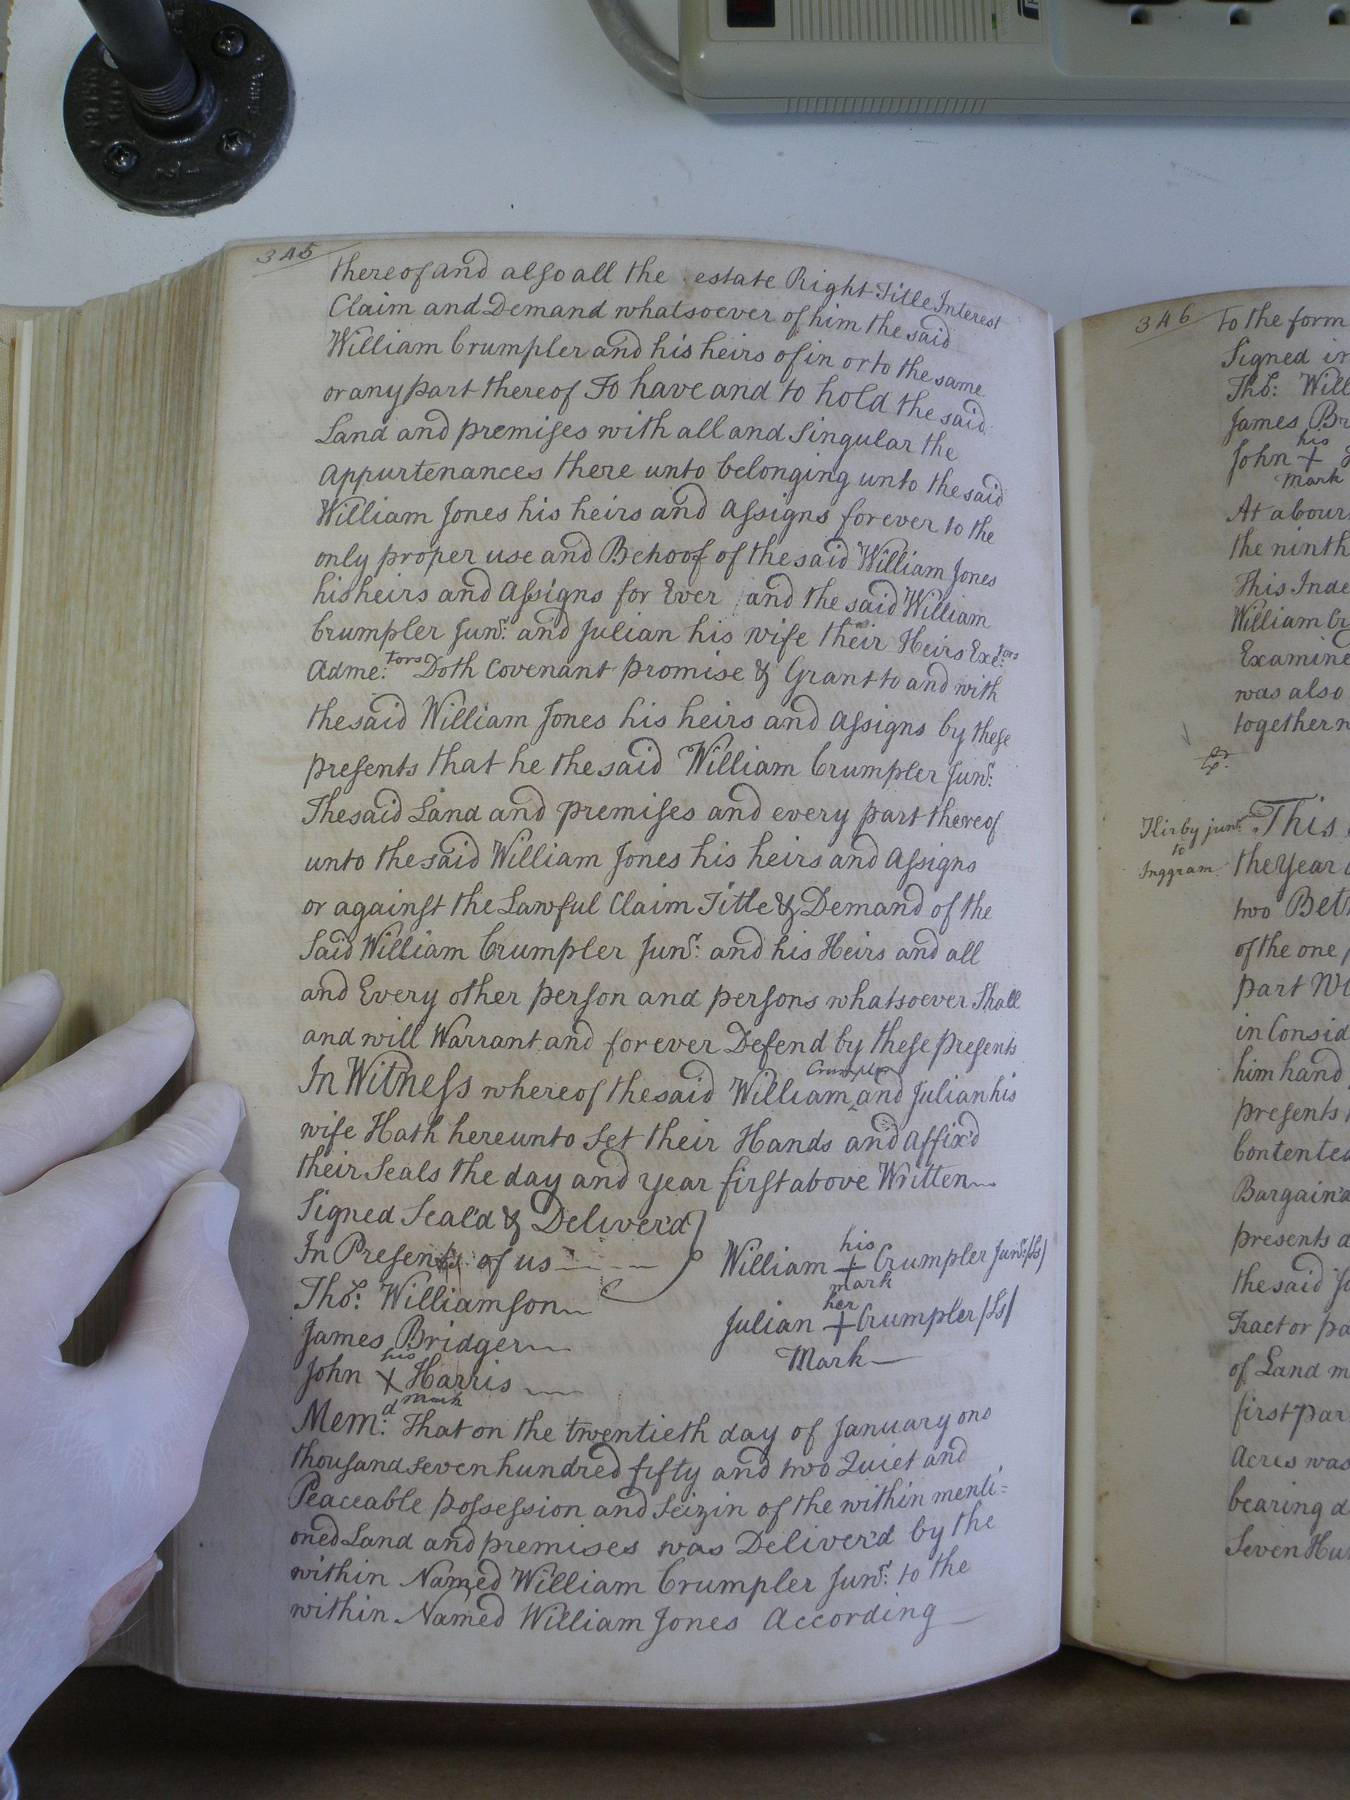 345
thereof and also all the estate Right Title Interest
Claim and Demand whatsoever of him the said
William Crumpler and his heirs of in or to the same
or any part thereof To have and to hold the said
Land and premises with all and Singular the
Appurtenances there unto belonging unto the said
William Jones his heirs and Assigns forever to the
only proper use and Behoof of the said William Jones
his heirs and Assigns for Ever and the said William
Crumpler Junr: and Julian his wife their Heirs Exe:tors
Adme:tors Doth Covenant promise & Grant to and with
the said William Jones his heirs and Assigns by these
presents that he the said William Crumpler Junr:
The said Land and premises and every part thereof
unto the said William Jones his heirs and Assigns
or against the Lawful Claim Title & Demand of the
Said William Crumpler Junr: and his Heirs and all
and Every other person and persons whatsoever Shall
and will Warrant and forever Defend by these presents
In Witness whereof the said William Crumpler and Julian his
wife Hath hereunto Set their Hands and Affix'd
their Seals the day and year first above Written
Signed Seal'd & Deliver'd
In Presents of us
William his + mark Crumpler Junr: (Ls)
Tho:s Williamson
Julian her + Mark Crumpler (Ls)
James Bridger
John his X mark Harris
Mem:d That on the twentieth day of January one
thousand seven hundred fifty and two Quiet and
Peaceable possession and Seizin of the within menti=
oned Land and premises was Deliver'd by the
within Named William Crumpler Junr: to the
within Named William Jones According
346
To the form
Signed in
Tho:s Will
James Br
John his + mark
At a Cour
the ninth
This Inde
William Cr
Examine
was also
together
Kirby junr
to
Inggram
This
the Year
two Bet
of the one
part Wi
in Consid
him hand
presents
Contented
Bargain'd
presents
the said
Tract or pa
of Land m
first par
Acres was
bearing d
Seven Hu